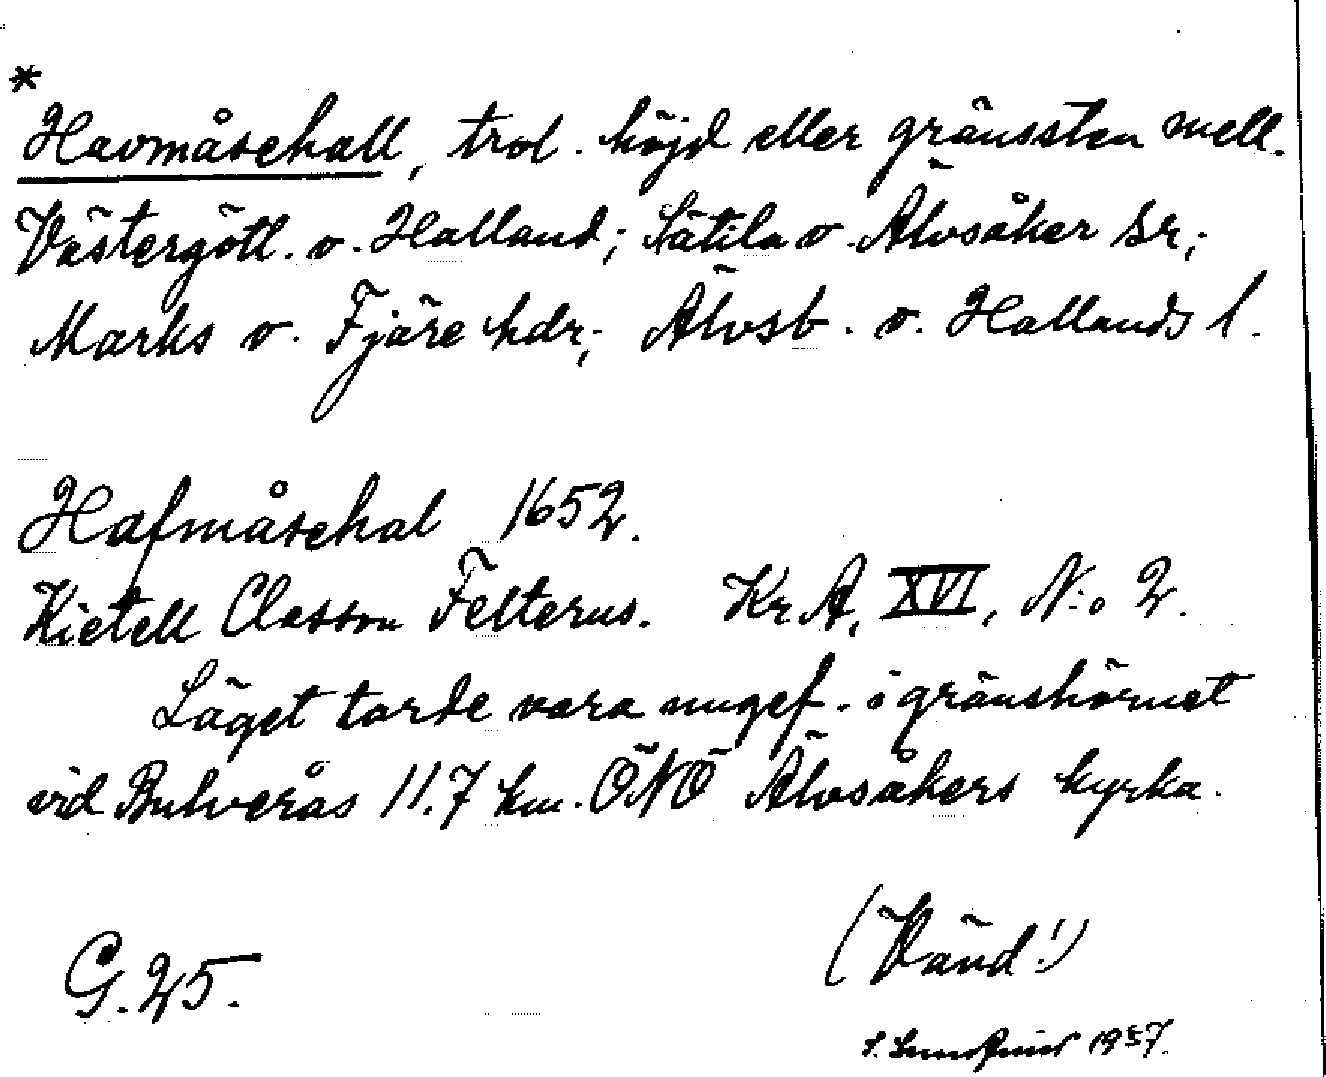 *
Havmåsehall, trol. höjd eller gränssten mell.
Västergötl. o. Halland; Sätila o. Älvsåker sr;
Marks o. Fjäre hdr; Älvsb. o. Hallands l.
Hafmåsehal 1652.
Kietell Classon Felterus. Kr A, XVI, N:o 2.
Läget torde vara ungef. i gränshörnet
vid Buhverås 11.7 km. ÖNÖ Älvsåkers kyrka.
(Vänd!)
G. 25.
1957.